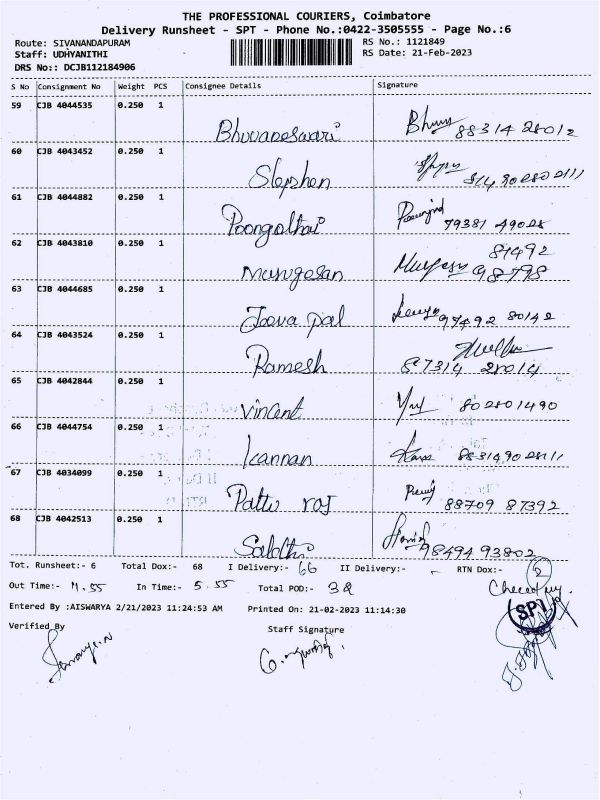 THE PROFESSIONAL COURIERS, Coimbatore
Delivery Runsheet - SPT - Phone No.:0422-3505555 - Page No.:6
Route: SIVANANDAPURAM RS No.: 1121849
Staff: UDHYANITHI RS Date: 21-Feb-2023
DRS No:: DCJB112184906
S No Consignment No Weight PCS Consignee Details Signature
59 CJB 4044535 0.250 1
Bhuvaneswari 88314 28012
60 CJB 4043452 0.250 1
Stephen
61 CJB 4044882 0.250 1
Poongothai 79381 49028
62 CJB 4043810 0.250 1 81492
Murugesan 98798
63 CJB 4044685 0.250 1
Jeeva pal 97492 80142
64 CJB 4043524 0.250 1
Ramesh 87314 28014
65 CJB 4042844 0.250 1
Vincent 802801490
66 CJB 4044754 0.250 1
Kannan
67 CJB 4034099 0.250 1
Pattu raj 88709 87392
68 CJB 4042513 0.250 1
98494 93802
Tot. Runsheet:- 6 Total Dox:- 68 I Delivery:- 66 II Delivery:- - RTN Dox:- 2
Out Time:- 7.55 In Time:- 5.55 Total POD:- 32
Entered By :AISWARYA 2/21/2023 11:24:53 AM Printed On: 21-02-2023 11:14:30
SPT
Verified By Staff Signature